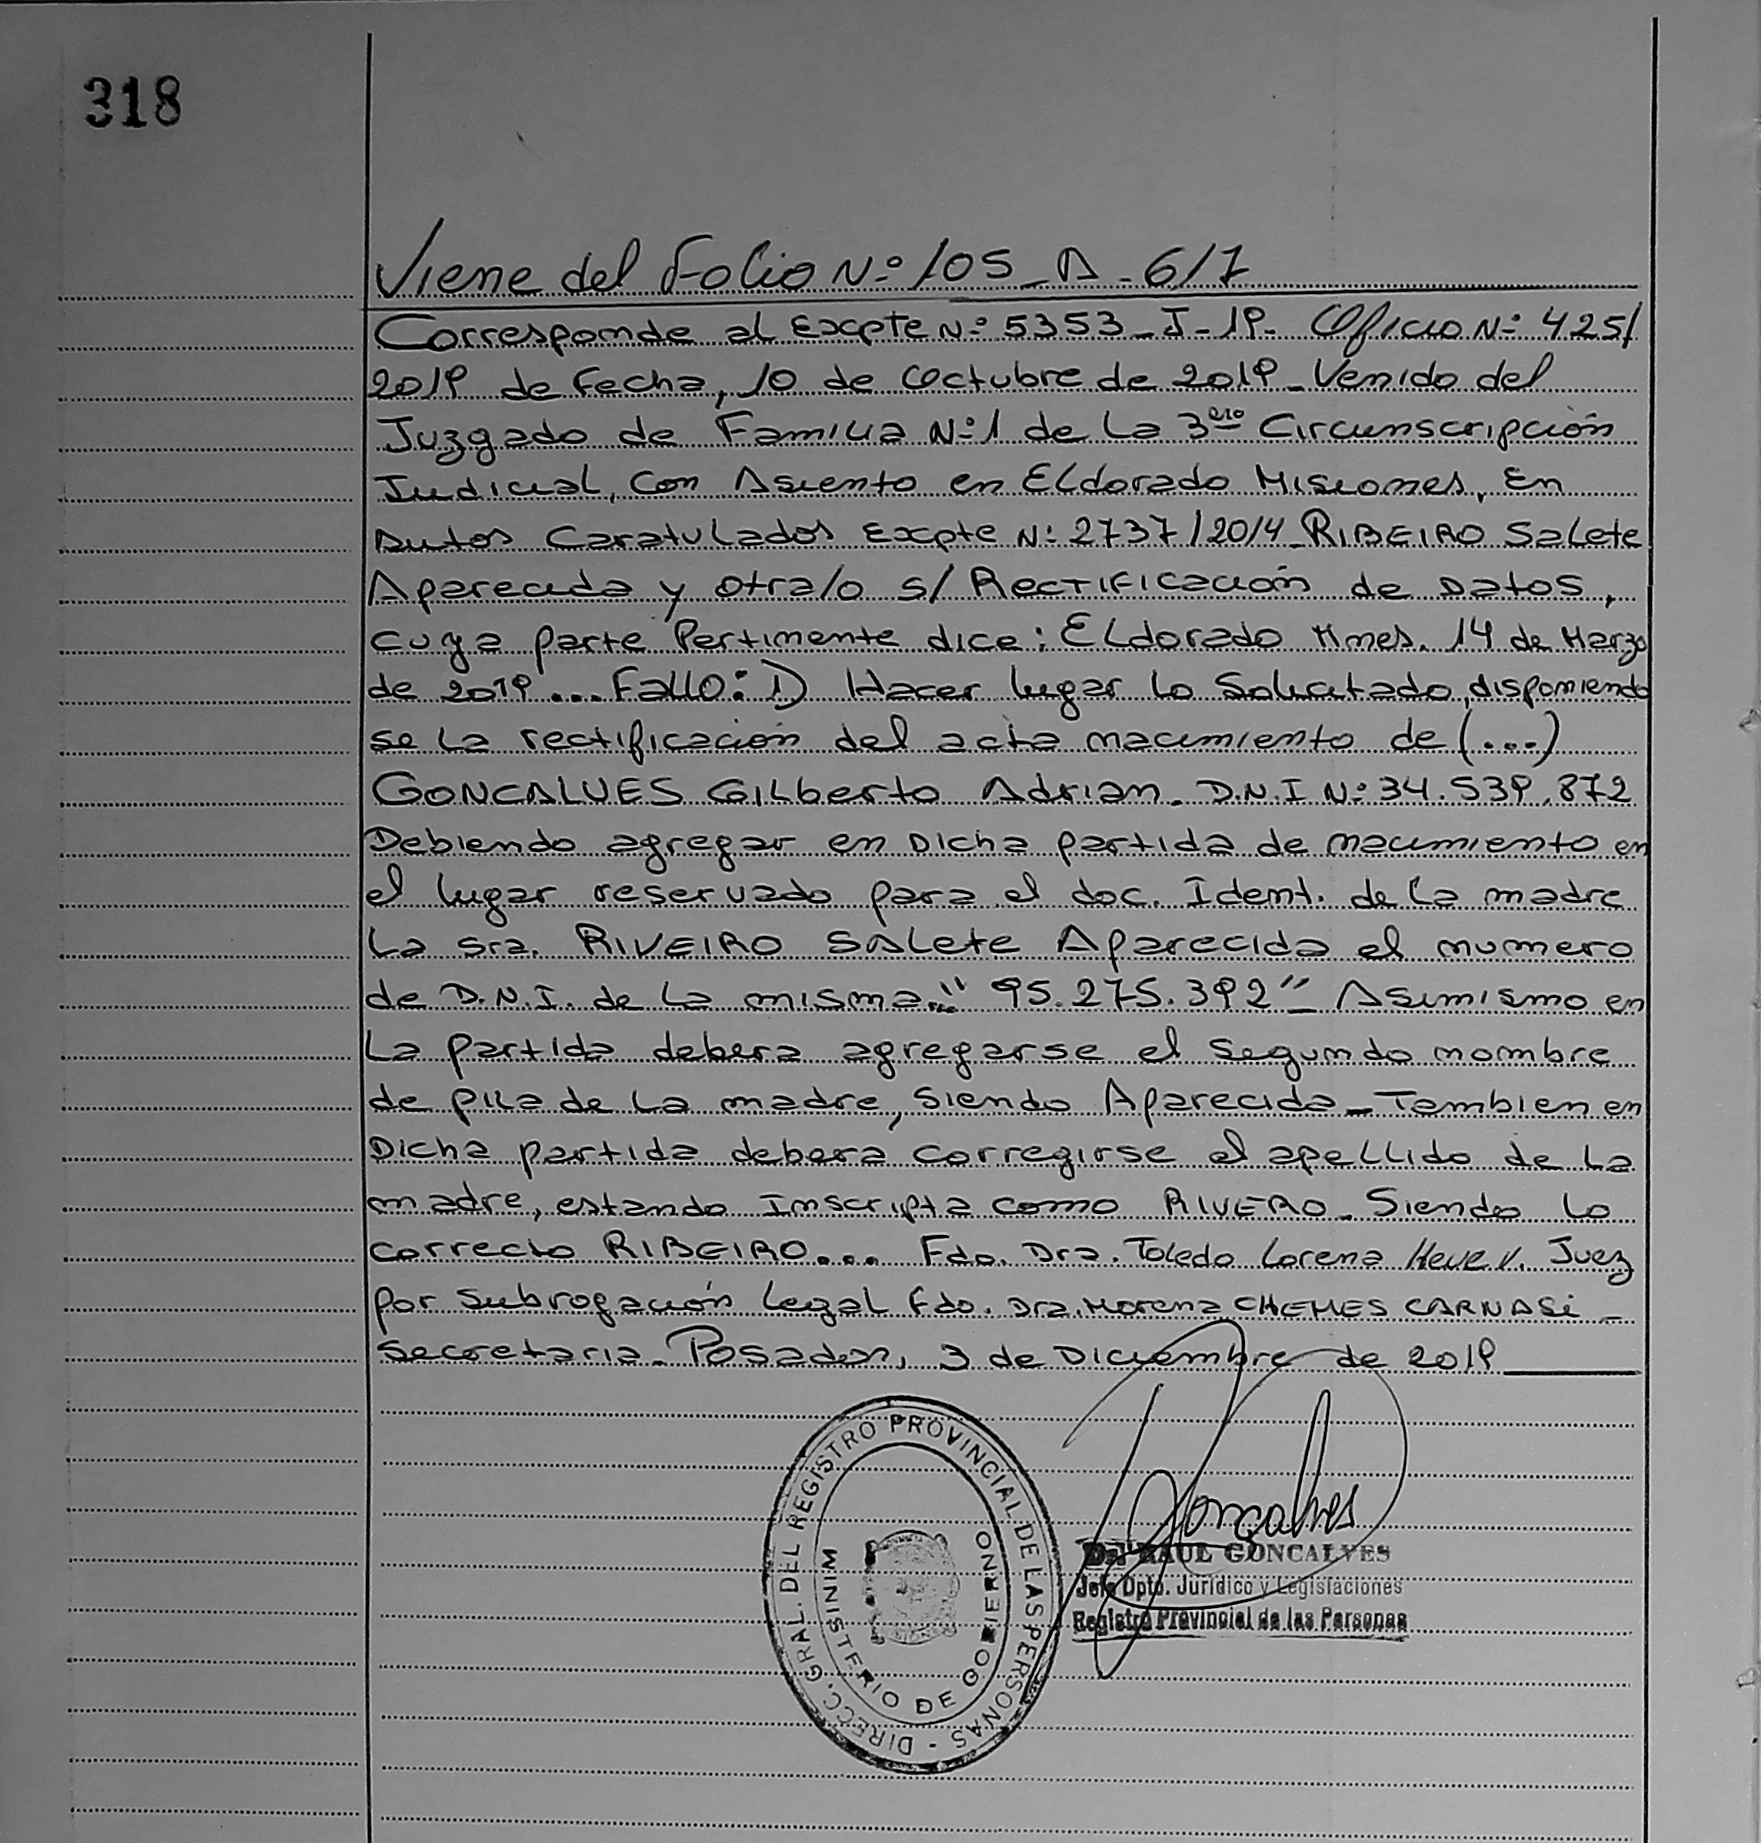 318
Viene del Folio Nº 105_A_6/7
Corresponde al Excpte Nº 5353_J_19_ Oficio Nº 425/
2019 de Fecha, 10 de Octubre de 2019_Venido del
Juzgado de Familia Nº1 de La 3era Circunscripción
Judicial, Con Asiento en ELdorado Misiones, En
Autos Caratulados Excpte Nº 2737/2014_RIBEIRO Salete
Aparecida y otra/o s/ RectIFIcación de Datos,
cuya parte Pertinente dice: ELdorado Mnes. 14 de Marzo
de 2019... Fallo: I) Hacer lugar lo Solicitado, disponiendo
se La rectificación del acta nacimiento de (...)
GONCALVES GILberto Adrian. D.N.I Nº 34.539.872
Debiendo agregar en Dicha partida de nacimiento en
el lugar reservado para el doc. Ident. de La madre
La sra. RIVEIRO SALete Aparecida el numero
de D.N.I. de La misma." 95.275.392" Asimismo en
La partida debera agregarse el segundo nombre
de pila de La madre, siendo Aparecida_Tambien en
Dicha partida debera corregirse el apellido de La
madre, estando Inscripta como RIVERO_ Siendo Lo
correcto RIBEIRO... Fdo. Dra. Toledo Lorena Heve V. Juez
por Subrogación Legal Fdo. Dra. Morena CHEMES CARNASi_
Secretaria. Posadas, 3 de Diciembre de 2019
DIRECC. GRAL. DEL REGISTRO PROVINCIAL DE LAS PERSONAS -
MINISTERIO DE GOBIERNO
Gonçalves
Dr. RAUL GONCALVES
Jefe Dpto. Jurídico y Legislaciones
Registro Provincial de las Personas